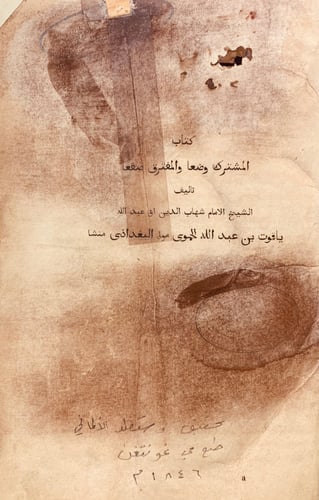 كتاب
المشترك وضعا والمفترق صقعا
تاليف
الشيخ الامام شهاب الدين ابى عبد الله
ياقوت بن عبد الله الحموى البغدادى منشا
وستنفلد الالماني
طبع في غوتنغن
١٨٤٦ م
a